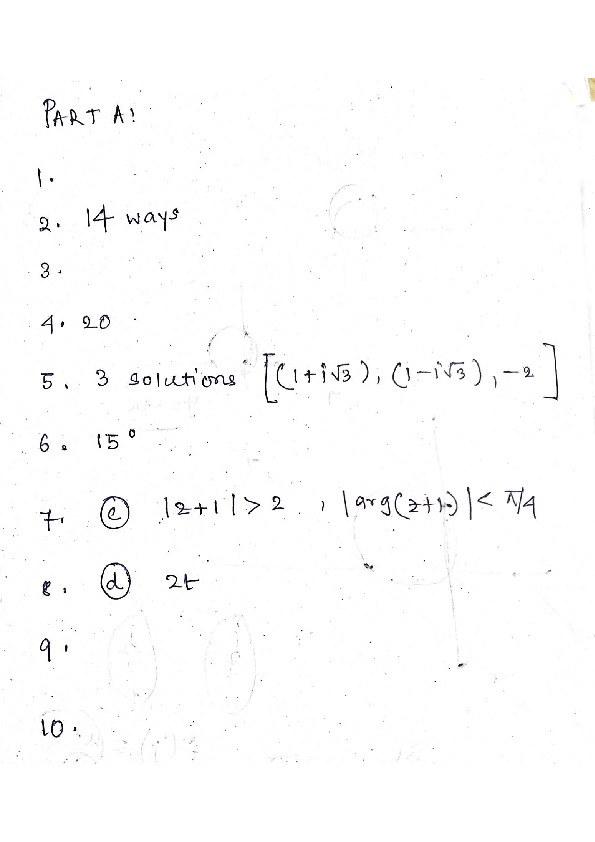 PART A:
1.
2. 14 ways
3.
4. 20
5. 3 solutions [(1+i√3), (1-i√3), -2]
6. 15°
7. (c) |z+1| > 2 , |arg(z+1)| < π/4
8. (d) 2t
9.
10.